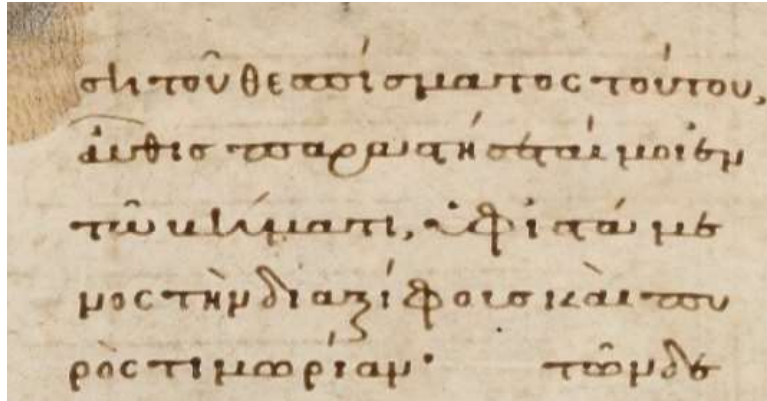 ση τοῦ θεσπίσματος τούτου,
αὖθις παραστήσεταί μοι ἐν
τῶ βήματι, ὑφιστάμε
νος τὴν διὰ ξίφους καὶ πυ
ρὸς τιμωρίαν· τῶν δὲ